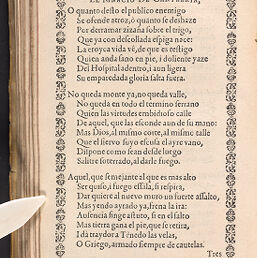 O quanto desto el publico enemigo
Se ofende atroz, ó quanto se deshaze
Por derramar zizaña sobre el trigo,
Que ya con descollada espiga nace:
La croyca vida vè, de que es testigo
Quien anda sano en pie, i doliente yaze
Del Hospital adentro, i aun ligera
Su emparedada gloria salta fuera.
No queda monte ya, no queda valle,
No queda en todo el termino serrano
Quien las virtudes embidioso calle
De aquel, que las esconde aun de su mano:
Mas Dios, al mismo corte, al mismo talle
Que el siervo suyo escusa el ayre vano,
Dispone como sean desde luego
Salitre soterrado, al darle fuego.
Aquel, que semejante al que es mas alto
Ser quiso, i fuego essala, si respira,
Dar quiere al nuevo muro un fuerte assalto,
Mas yendo ayrado ya, frena la ira:
Ausencia finge astuto, si en el salto
Mas tierra gana el pie, que se retira,
I da traydora Tenedo las velas,
O Griego, armado siempre de cautelas.
Tres